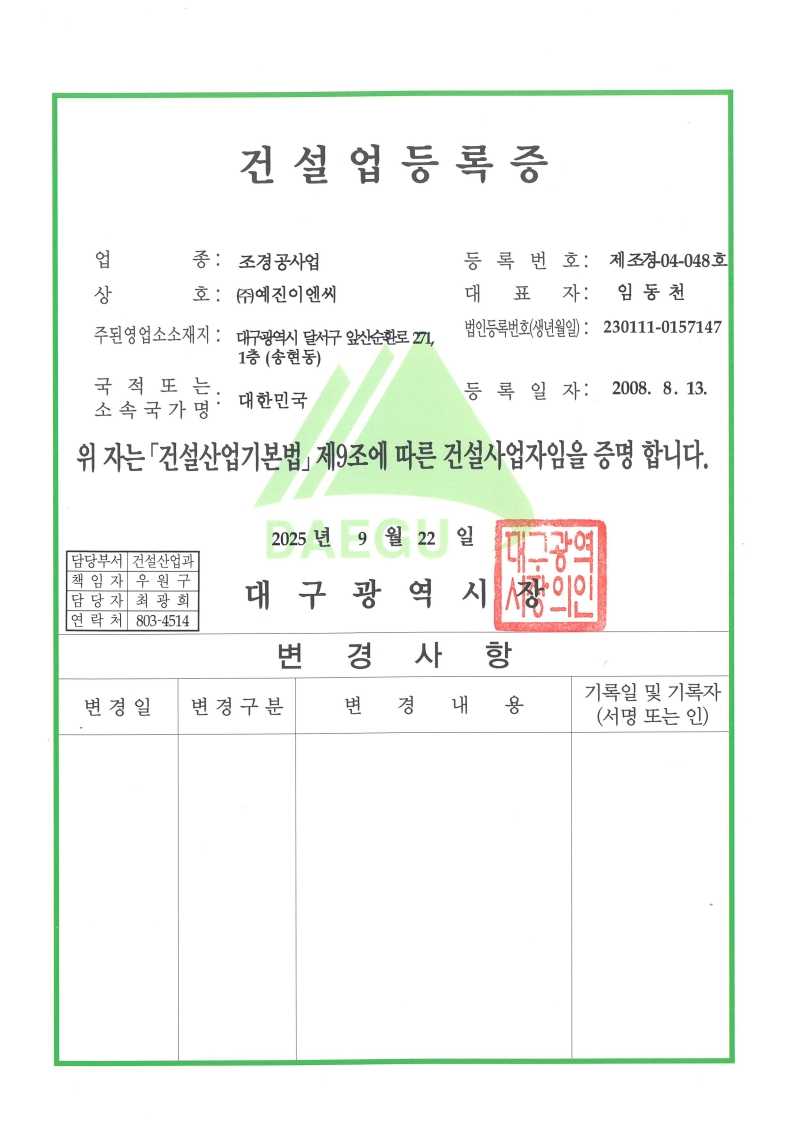 건설업등록증
업 종 : 조경공사업
등 록 번 호 : 제조경-04-048호
상 호 : (주)예진이엔씨
대 표 자 : 임동천
주된영업소소재지 : 대구광역시 달서구 앞산순환로 271,
1층 (송현동)
법인등록번호(생년월일) : 230111-0157147
국 적 또 는
소속국가명 : 대한민국
등 록 일 자 : 2008. 8. 13.
위 자는 「건설산업기본법」 제9조에 따른 건설사업자임을 증명 합니다.
DAEGU
2025 년 9 월 22 일
담당부서 건설산업과
책임자 우원구
담당자 최광희
연락처 803-4514
대구광역시장
대구광역
시장의인
변경사항
변경일 변경구분 변경내용 기록일 및 기록자
(서명 또는 인)